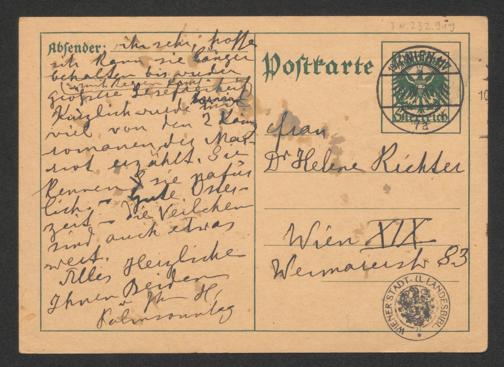 J.N. 232.919
Absender:
ich sehr, hoffe
ich kann sie länger
behalten bis wieder
größte Lesefreiheit
Kürzlich wurde
viel von den 2
romanen des
erzählt. Sie
Kennen sie natür
lich – Gute Oster-
zeit – die Veilchen
sind auch etwas
wert.
Alles Herzliche
Ihnen Beiden
Palmsonntag
Postkarte
WIEN
7a
Österreich
Frau
Dr Helene Richter
Wien XIX
Weimarerstr 83
WIENER STADT- U. LANDESBIBL.